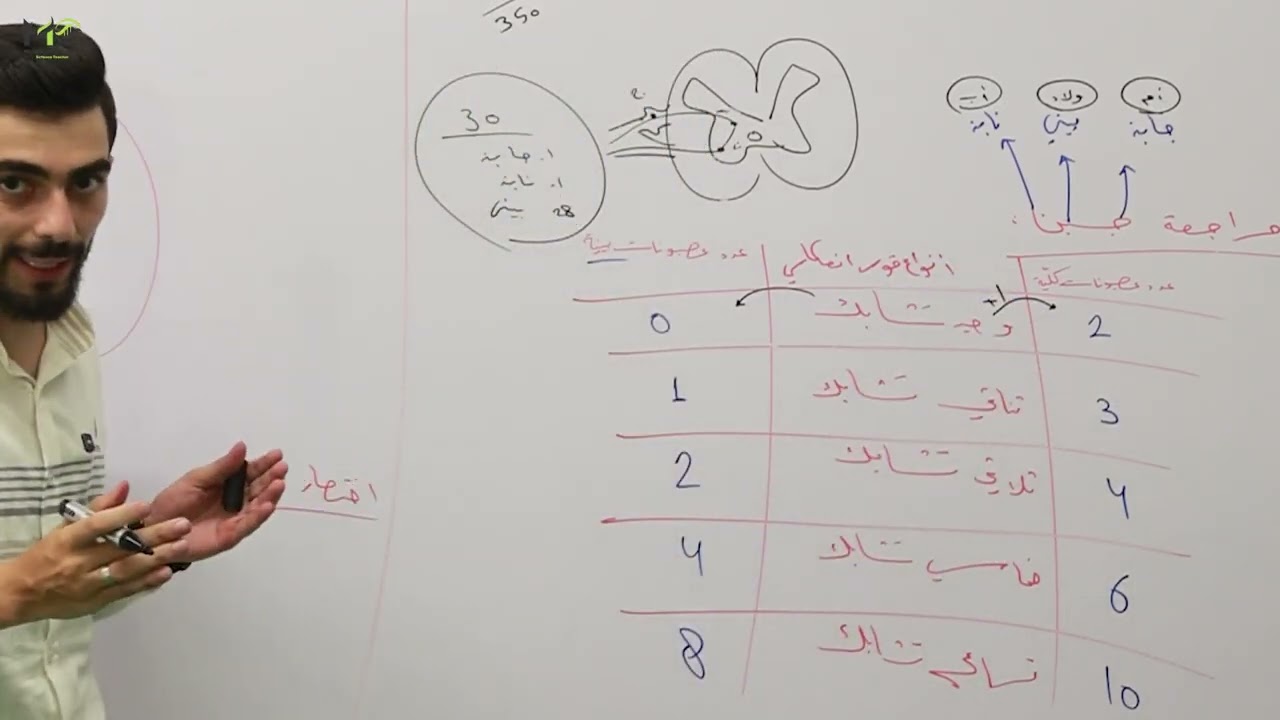 350
30
1. جابذ
1. نابذ
28 بيني
2.
أم ولاد أب
جابذة بيني نابذة
مراجعة حسبنا :
عدد عصبونات كلية أنواع قوس انعكاسي عدد عصبونات بينية
+1
2 وحيد تشابك 0
3 ثنائي تشابك 1
4 ثلاثي تشابك 2
6 خماسي تشابك 4
10 تساعي تشابك 8